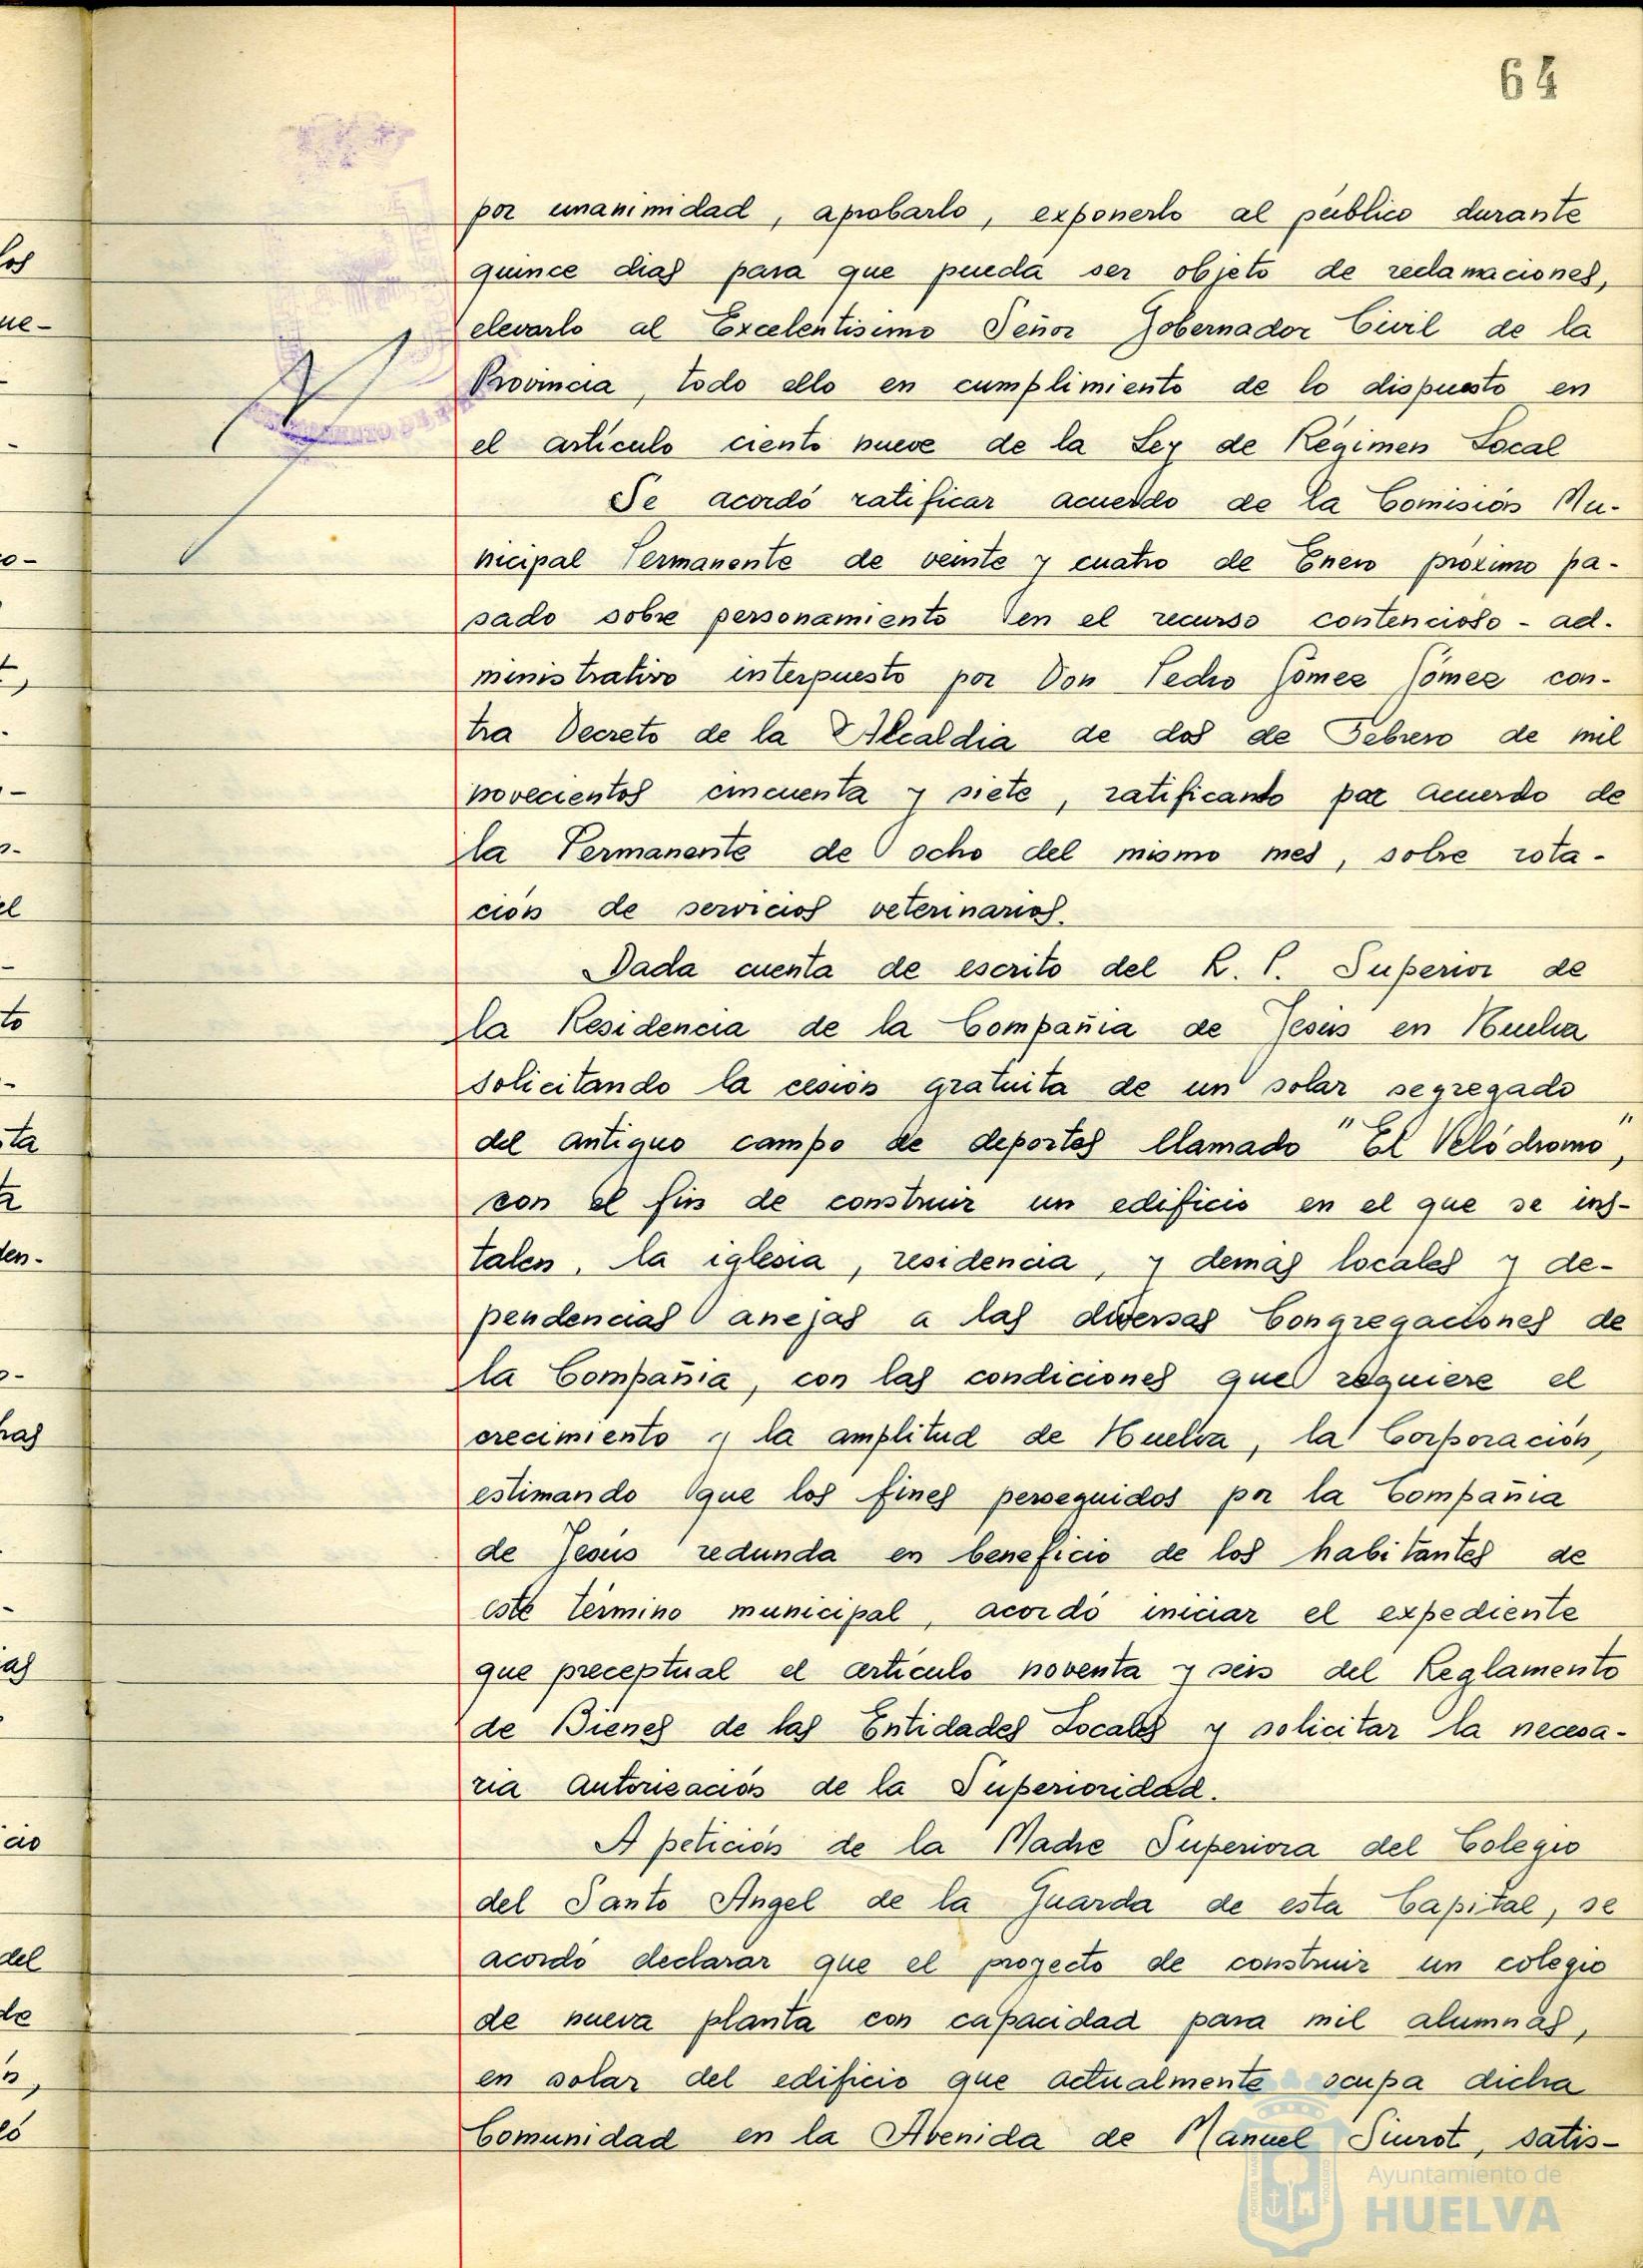 64
por unanimidad, aprobarlo, exponerlo al público durante
quince dias para que pueda ser objeto de reclamaciones,
elevarlo al Excelentisimo Señor Gobernador Civil de la
Provincia, todo ello en cumplimiento de lo dispuesto en
el artículo ciento nueve de la Ley de Régimen Local
Se acordó ratificar acuerdo de la Comisión Mu-
nicipal Permanente de veinte y cuatro de Enero próximo pa-
sado sobre personamiento en el recurso contencioso-ad-
ministrativo interpuesto por Don Pedro Gómez Gómez con-
tra Decreto de la Alcaldia de dos de Febrero de mil
novecientos cincuenta y siete, ratificando por acuerdo de
la Permanente de ocho del mismo mes, sobre rota-
ción de servicios veterinarios.
Dada cuenta de escrito del R. P. Superior de
la Residencia de la Compañia de Jesús en Huelva
solicitando la cesión gratuita de un solar segregado
del antiguo campo de deportes llamado "El Velódromo",
con el fin de construir un edificio en el que se ins-
talen, la iglesia, residencia, y demás locales y de-
pendencias anejas a las diversas Congregaciones de
la Compañia, con las condiciones que requiere el
crecimiento y la amplitud de Huelva, la Corporación,
estimando que los fines perseguidos por la Compañia
de Jesús redunda en beneficio de los habitantes de
este término municipal, acordó iniciar el expediente
que preceptual el artículo noventa y seis del Reglamento
de Bienes de las Entidades Locales y solicitar la necesa-
ria autorización de la Superioridad.
A petición de la Madre Superiora del Colegio
del Santo Angel de la Guarda de esta Capital, se
acordó declarar que el proyecto de construir un colegio
de nueva planta con capacidad para mil alumnas,
en solar del edificio que actualmente ocupa dicha
Comunidad en la Avenida de Manuel Siurot, satis-
Ayuntamiento de
HUELVA